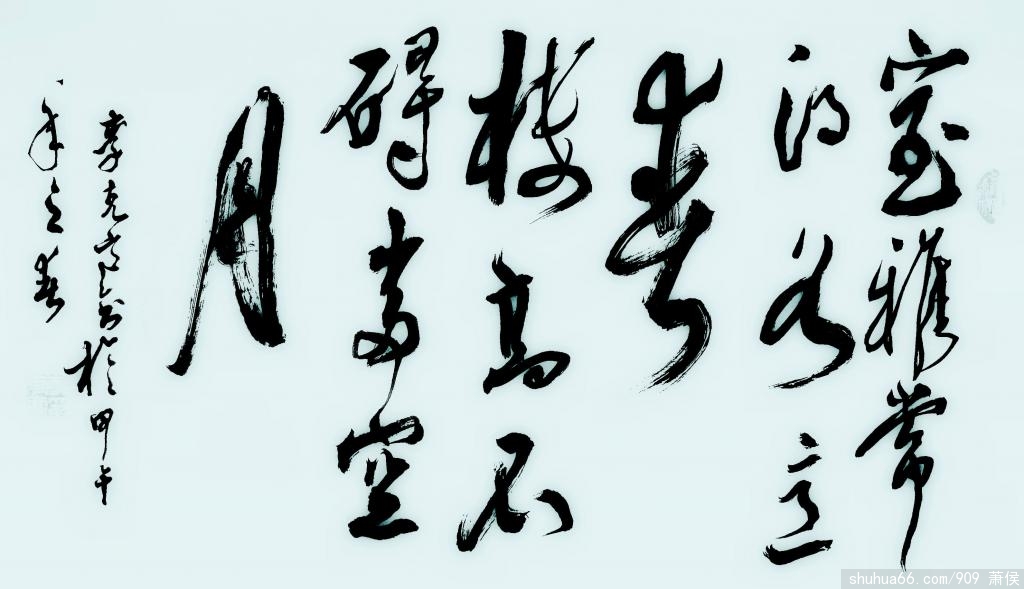 室雅常
得意
春
楼高不
碍当空
月
李克书於甲午
年春
shuhua66.com/909 萧侯